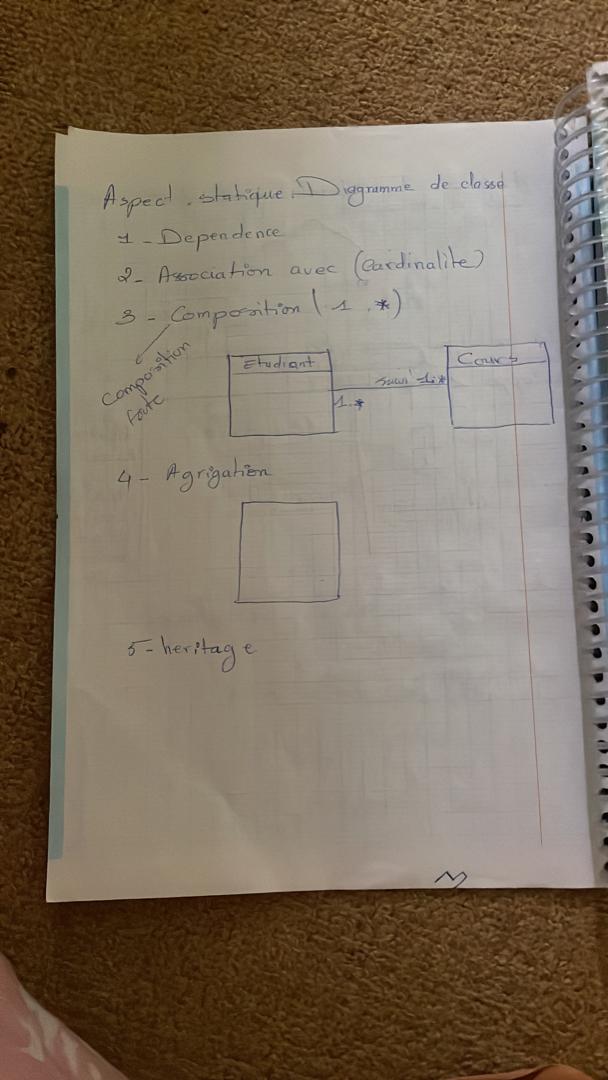 Aspect statique Diagramme de classe
1 - Dependence
2- Association avec (Cardinalite)
3 - Composition (1 .*)
Composition
Etudiant
Cours
suivi 1.*
1.*
4 - Agrigation
5 - heritage